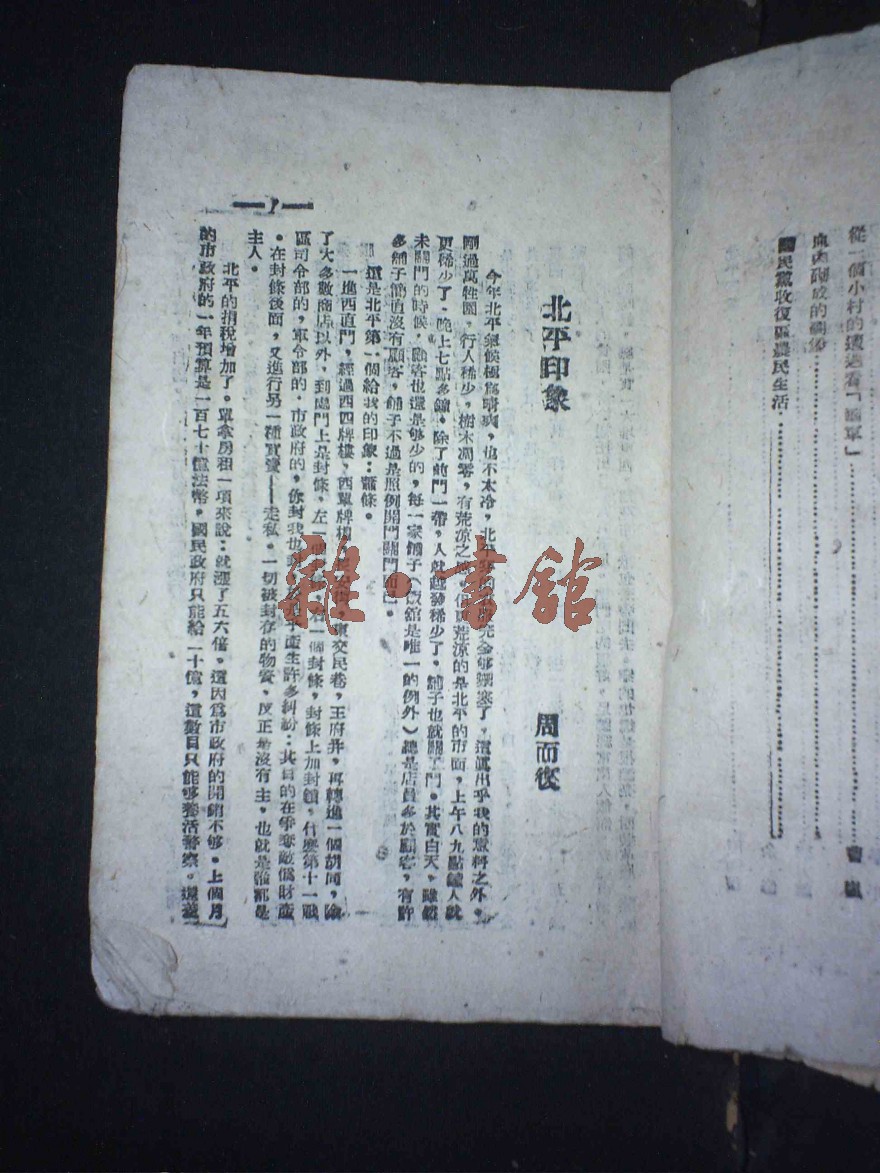 從一個小村的遭遇看「國軍」
血肉
曹
國民黨收復區農民生活
北平印象
周而復
今年北平氣候極爲晴爽，也不太冷，北平
剛過萬牲園，行人稀少，樹木凋零，有荒凉之
荒凉的是北平的市面，上午八九點鐘人就
更稀少了。晚上七點多鐘，除了前門一帶，人就越發稀少了。舖子也就關了門。其實白天，雖然
未關門的時候，顧客也還是够少的，每一家舖子（飯舘是唯一的例外）總是店員多於顧客，有許
多舖子簡直沒有顧客，舖子不過是照例開門關門而已。
這是北平第一個給我的印象：蕭條。
一進西直門，經過西四牌樓，西單牌樓，東交民巷，王府井，再轉進一個胡同，除
了大多數商店以外，到處門上是封條，左一個封條，右一個封條，封條上加封鎖，什麽第十一戰
區司令部的，軍令部的，市政府的，你封我也封，產生許多糾紛：其目的在爭奪敵僞財產
。在封條後面，又進行另一種買賣——走私。一切被封存的物資，反正是沒有主，也就是誰都是
主人。
北平的捐稅增加了。單拿房租一項來說：就漲了五六倍。還因爲市政府的開銷不够。上個月
的市政府的一年預算是一百七十億法幣，國民政府只能給二十億，這數目只能够養活警察。還差
—1—
雜·書舘